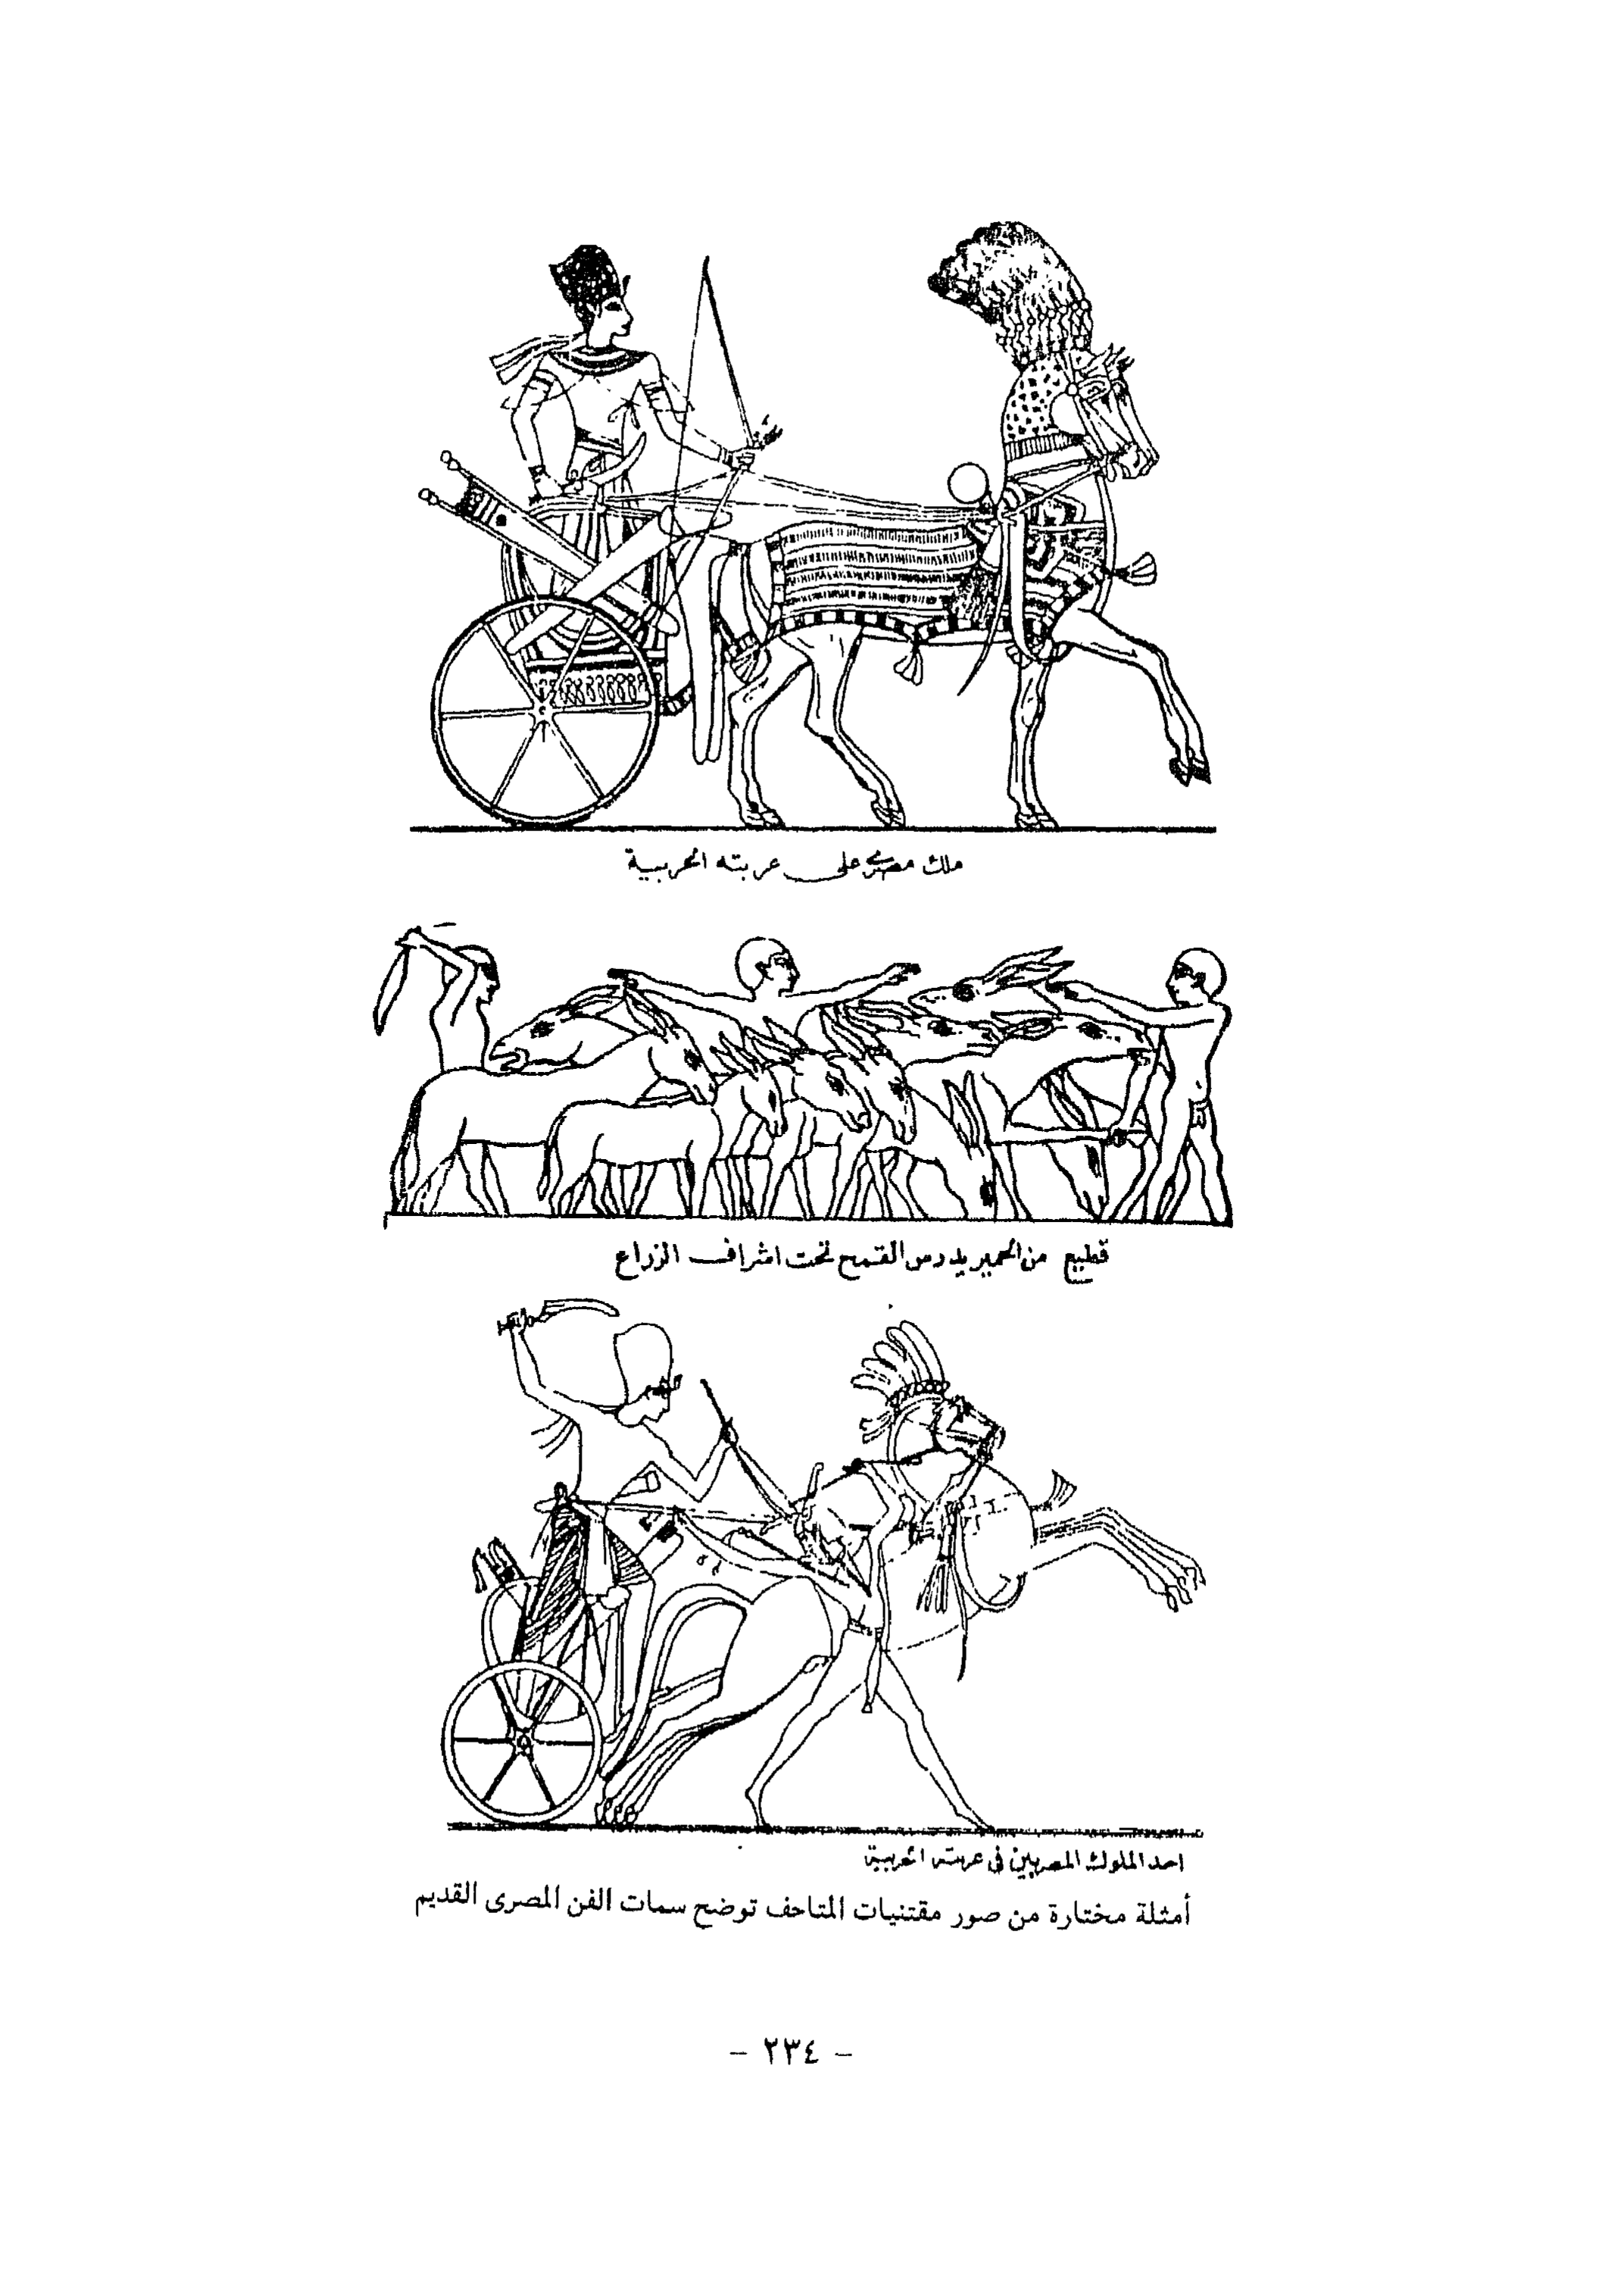 ملك مصرى على عربته الحربية
قطيع من الحمير يدرس القمح تحت اشراف الزراع
احد الملوك المصريين فى عربته الحربية
أمثلة مختارة من صور مقتنيات المتاحف توضح سمات الفن المصرى القديم
– ٢٣٤ –